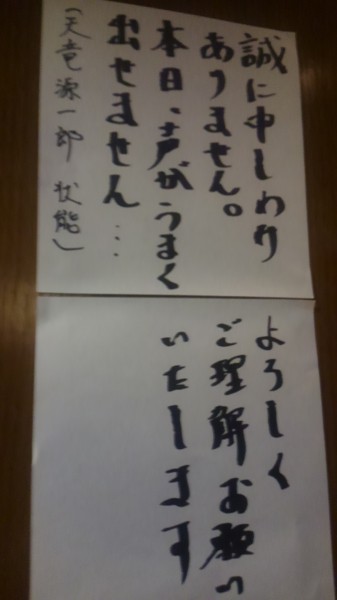 誠に申しわけ
ありません。
本日、声がうまく
出せません…
(天竜源一郎 状態)
よろしく
ご理解お願い
いたします